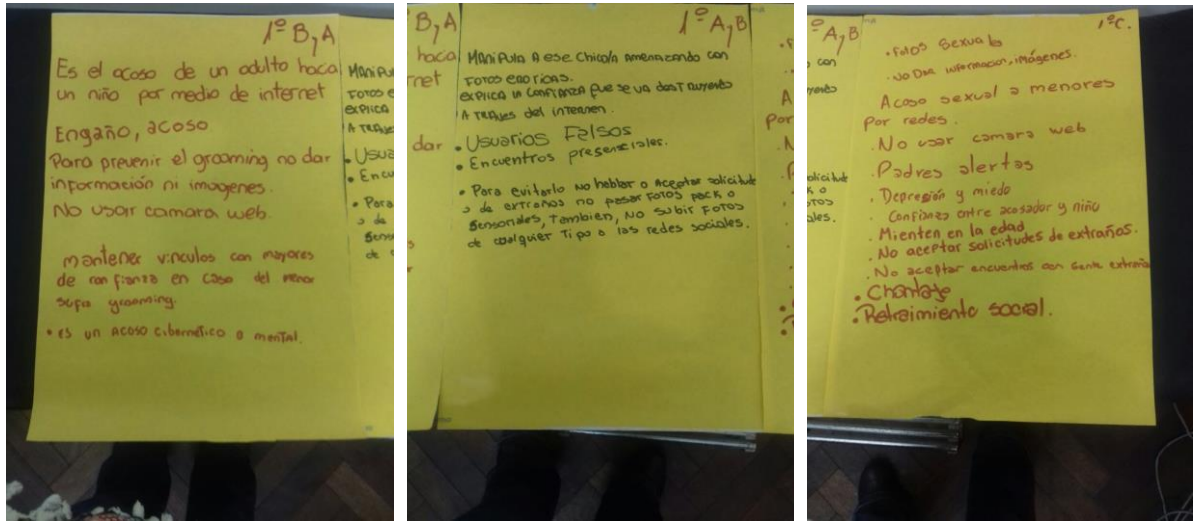 1º B, A
Es el acoso de un adulto hacia
un niño por medio de internet
Engaño, acoso
Para prevenir el grooming no dar
información ni imagenes.
No usar camara web.
mantener vinculos con mayores
de confianza en caso del menor
sufra grooming.
• es un acoso cibernético o mental.
1º A, B
MANIPULA A ese Chico/a Amenazando con
FOTOS eroticas.
EXPLICA la CONFIANZA que se va
A TRAVES del internen.
• Usuarios Falsos
• Encuentros presenciales.
• Para evitarlo No hablar o Aceptar solicitude
s de extraños no pasar FOTOS pack o
Sensonales, Tambien, No subir FOTOS
de cualquier Tipo a las redes sociales.
1º C.
• Fotos Sexuales
• No Dar informacion, imágenes.
Acoso sexual a menores
por redes.
• No usar camara web
• Padres alertas
• Depresión y miedo
• Confianza entre acosador y niño
• Mienten en la edad
• No aceptar solicitudes de extraños.
• No aceptar encuentros con gente extraña
• Chantaje
• Retraimiento social.